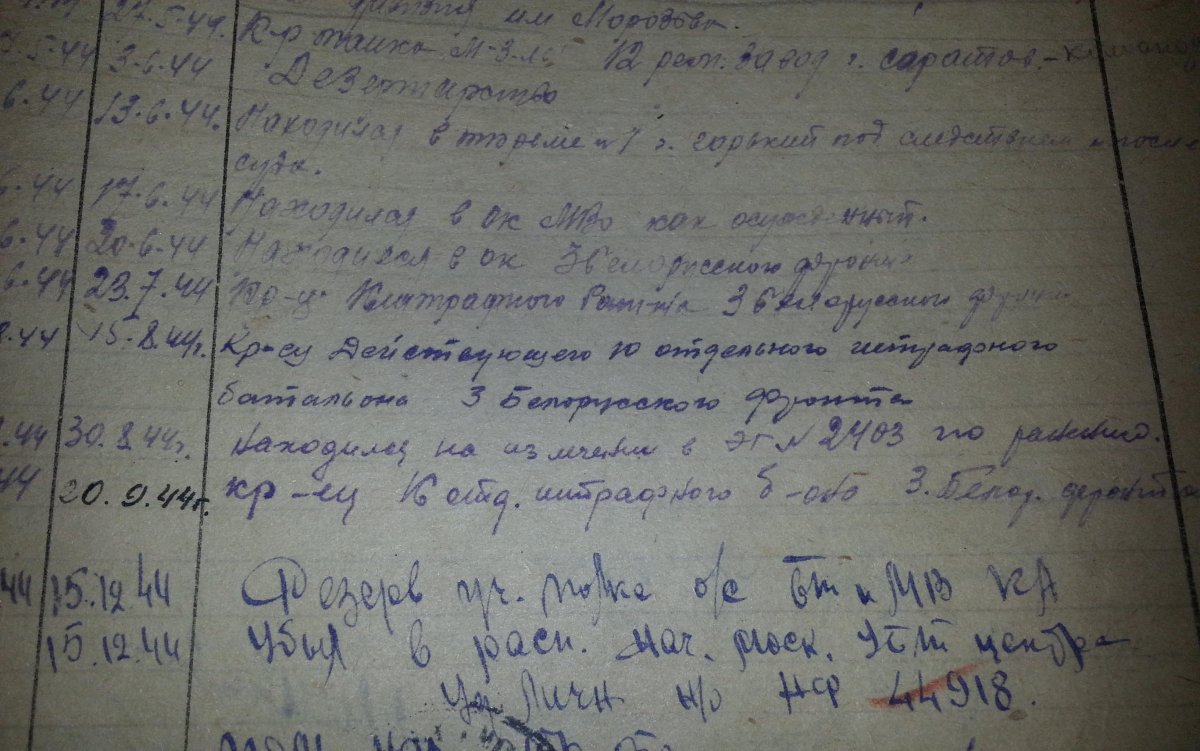 27.5.44. им Морозова.
5.44 3.6.44 К-р танка М-3-л 12 рем. завод г. саратов -
Дезертирство
6.44 13.6.44. Находился в тюрьме №1 г. горький под следствием и после
суда.
6.44 17.6.44 Находился в ок МВО как осужденный.
6.44 20.6.44 Находился в ок 3 Белорусского фронта
6.44 23.7.44 3 Белорусского фронта
8.44 15.8.44г. Кр-ец Действующего 10 отдельного штрафного
батальона 3 Белорусского Фронта
8.44 30.8.44г. находился на излечении в ЭГ №2403 по ранению.
44 20.9.44г. кр-ец 10 отд. штрафного б-она 3. Белор. фронта
44 15.12.44 Резерв уч. полка о/с БТ и МВ КА
15.12.44 Убыл в расп. нач. моск. УБТ центра
Личн НФ 44918.